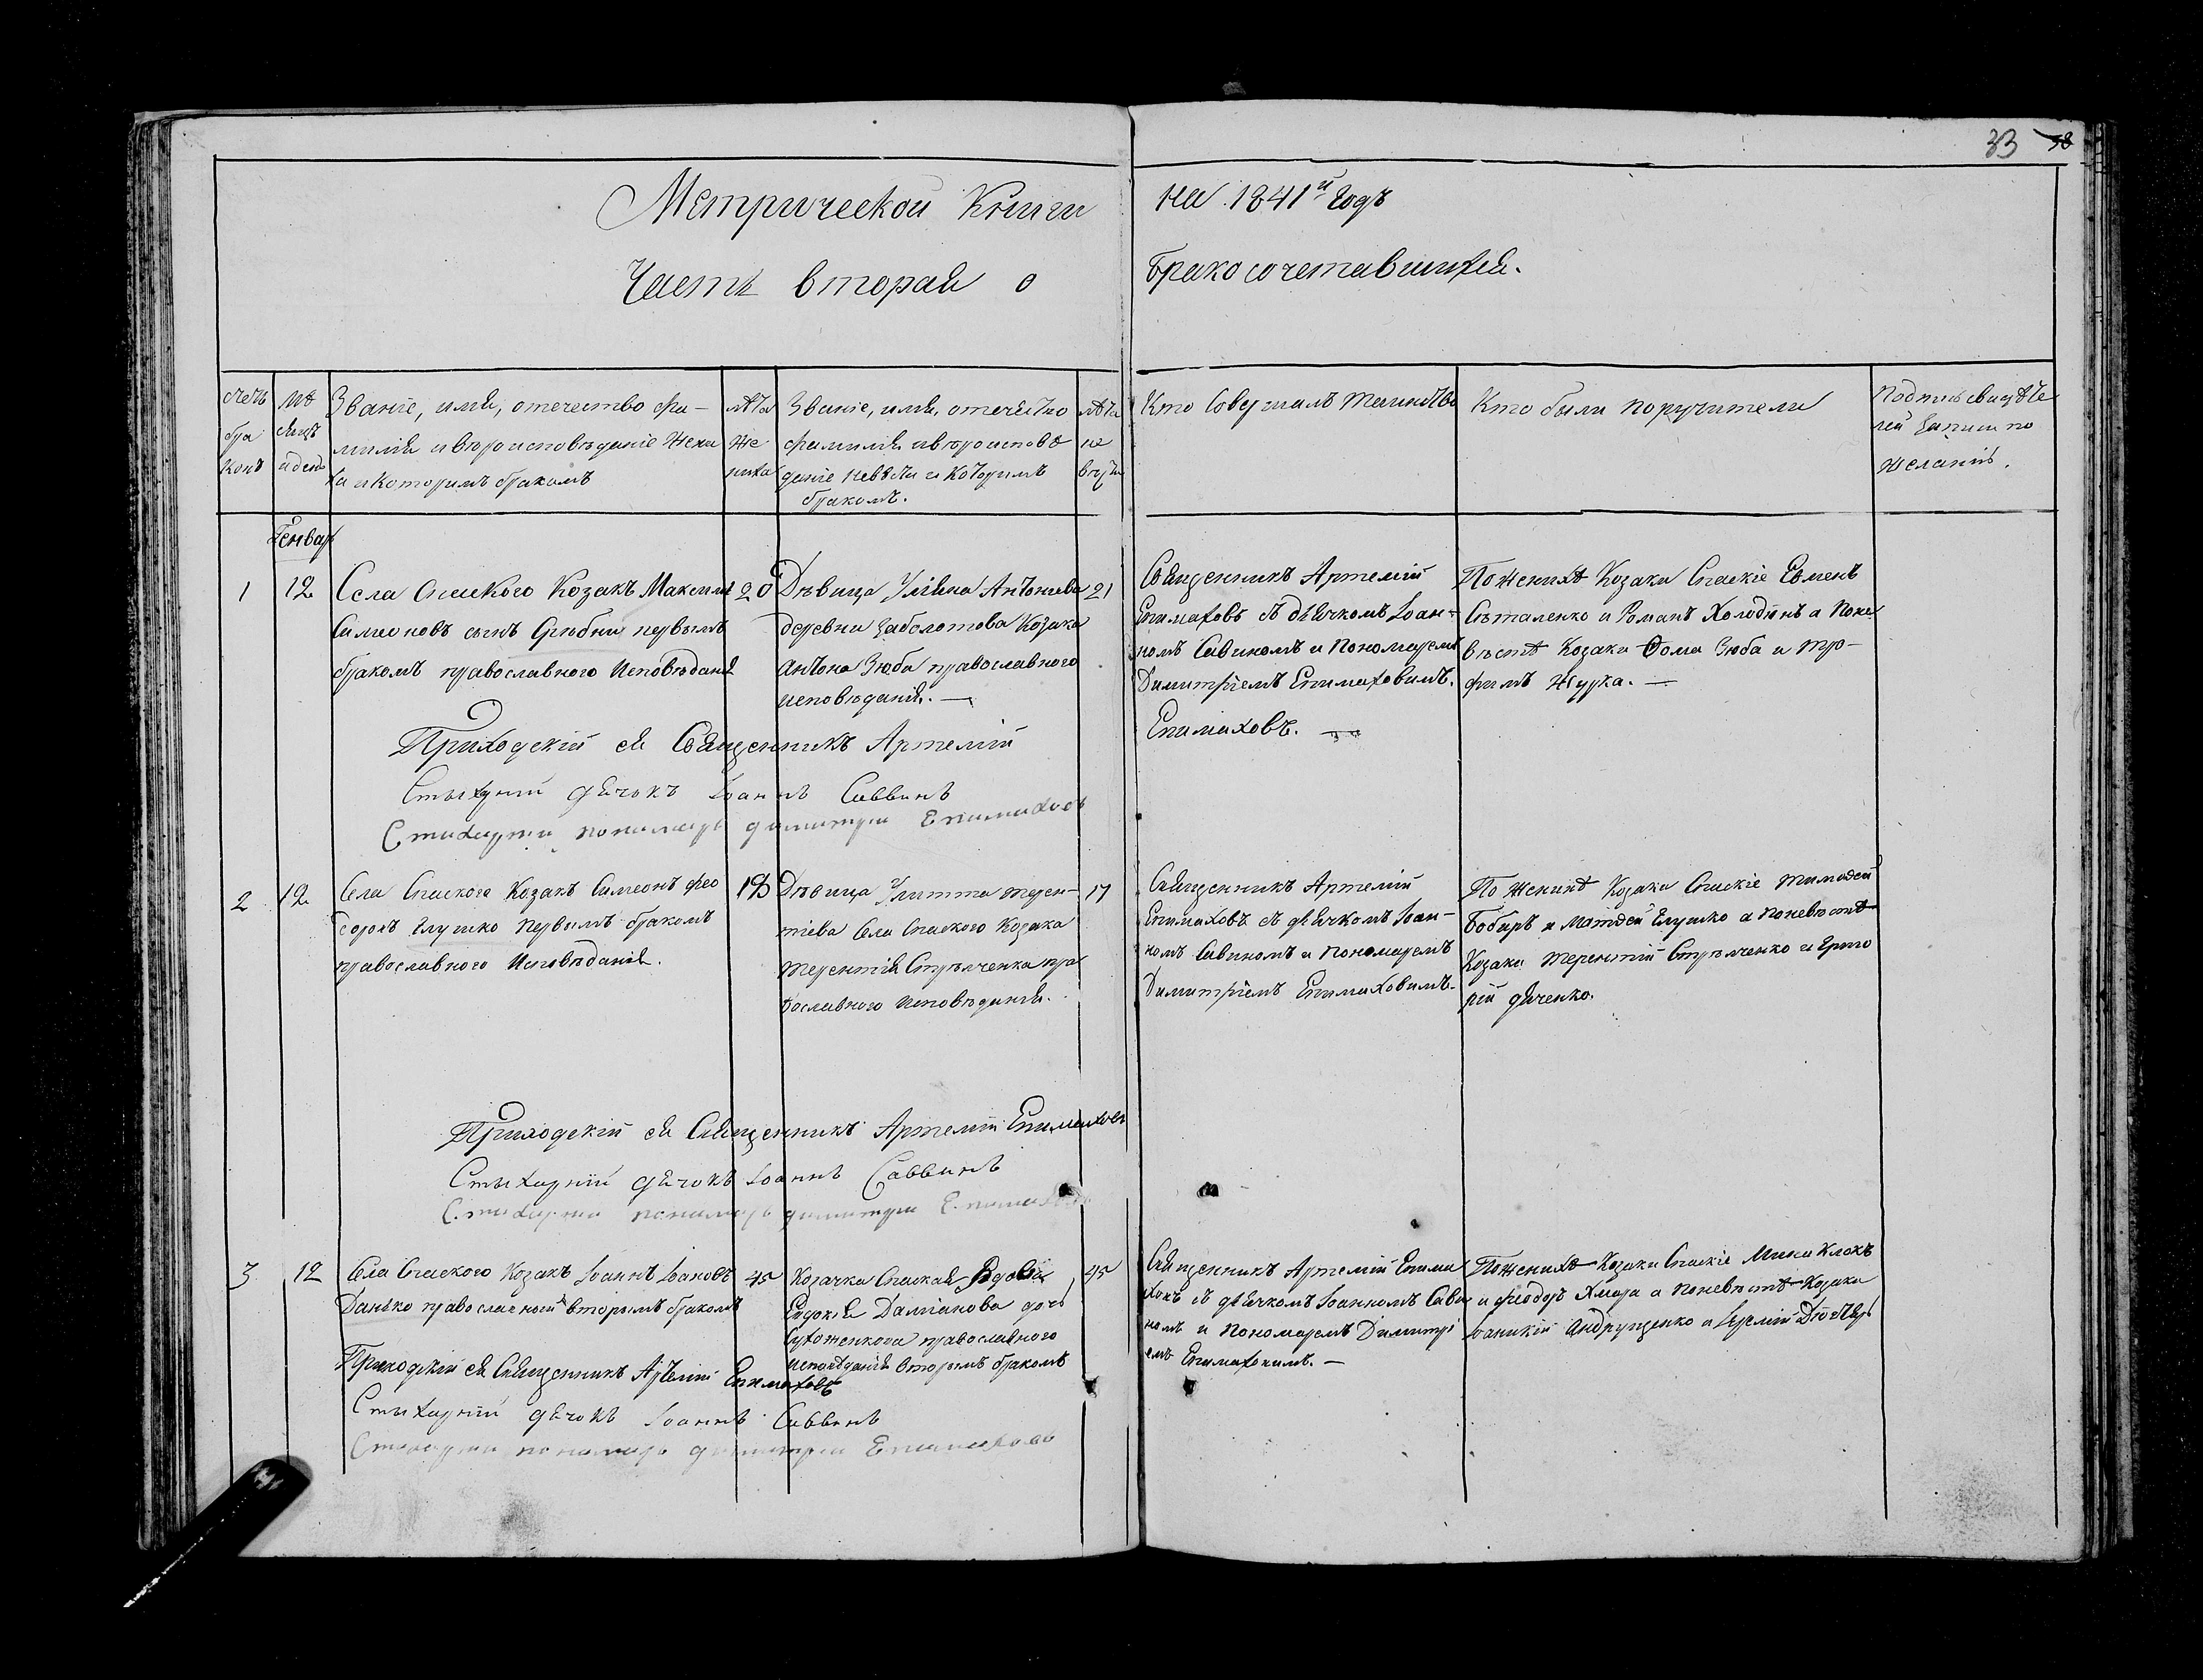 33 38
Метрической Книги на 1841й Годъ
Часть вторая о бракосочетавшихся.
счетъ браковъ
мѣсяцъ и день
Званіе, имя, отечество фа-
милія и вѣроисповѣданіе жени
ха и которимъ бракомъ
лѣта
же
ниха
Званіе, имя, отечество
фамилія и вѣроисповѣ
даніе невѣсти и которимъ
бракомъ.
лѣта
не
вѣсти
Кто совершалъ таинство
Кто были поручители
Подпись свидѣте
лей записи по
желанію.
Генвар
1
12
Села Спаского Козакъ Максимъ
Симеоновъ сынъ Срѣбни первымъ
бракомъ православного Исповѣданія
20
Дѣвица Уліяна Антоніева
деревни Заболотова Козака
Антона Зюба православного
исповѣданія. —
21
Священникъ Артемій
Епимаховъ съ дьячкомъ Іоан-
номъ Савиномъ и Пономаремъ
Димитріемъ Епимаховимъ.
По женихѣ Козаки Спаскіе Евменъ
и Романъ Холодинъ а поне
вѣстѣ Козаки Ѳома Зюба и Тро-
фимъ Журка. —
Приходскій ея Священникъ Артемій Епимаховъ. —
Стыхарній дячокъ Іоаннъ Саввинъ
Стихарни пономарь димитри Епимаховъ
2
12
Села Спаского Козакъ Симеонъ Фео
доровъ Глушко Первымъ бракомъ
православного Исповѣданія.
18
Дѣвица Улитта Терен-
тіева Села Спаского Козака
Терентія Стрѣлченка пра
вославного Исповѣданія.
17
Священникъ Артемій
Епимаховъ съ дьячкомъ Іоан-
номъ Савиномъ и Пономаремъ
Димитріемъ Епимаховимъ.
По женихѣ Козаки Спаскіе Тимофей
Бобиръ и Матѳей Глушко а поневѣстѣ
Козаки Терентій Стрѣлченко и Григо
рій дяченко.
Приходскій ея Священникъ Артемій Епимаховъ
Стыхарній дячокъ Іоаннъ Саввинъ
Стихарни пономарь димитри Епимаховъ
3
12
Села Спаского Козакъ Іоаннъ Іоановъ
Данько православный вторымъ бракомъ
45
Козачка Спаская Вдова
Евдокія Даміанова дочь
православного
исповѣданія вторымъ бракомъ
45
Священникъ Артемій Епима
ховъ съ дьячкомъ Іоанномъ Сави
номъ и Пономаремъ Димитрі
емъ Епимаховимъ. —
По женихѣ Козаки Спаскіе Мина Клокъ
и Феодоръ Хмара а поневѣстѣ Козаки
Іоаникій Андрущенко и
Приходскій ея Священникъ Артемій Епимаховъ
Стыхарній дячокъ Іоаннъ Саввинъ
Стихарни пономарь димитри Епимаховъ